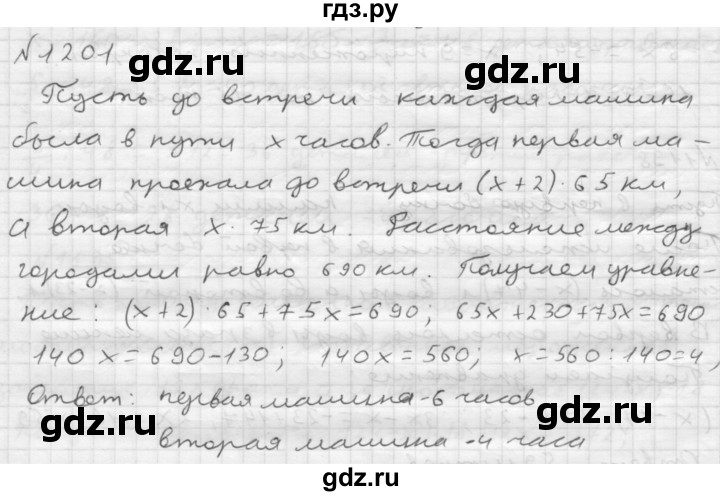 гдз.ру
№1201
gdz.ru gdz.ru
Пусть до встречи каждая машина
была в пути x часов. Тогда первая ма-
шина проехала до встречи (x+2)·65 км,
gdz.ru gdz.ru
а вторая x·75 км. Расстояние между
городами равно 690 км. Получаем уравне-
gdz.ru gdz.ru
ние: (x+2)·65+75x=690; 65x+230+75x=690
140x=690-130; 140x=560; x=560:140=4,
Ответ: первая машина-6 часов,
gdz.ru gdz.ru
вторая машина -4 часа
gdz.ru